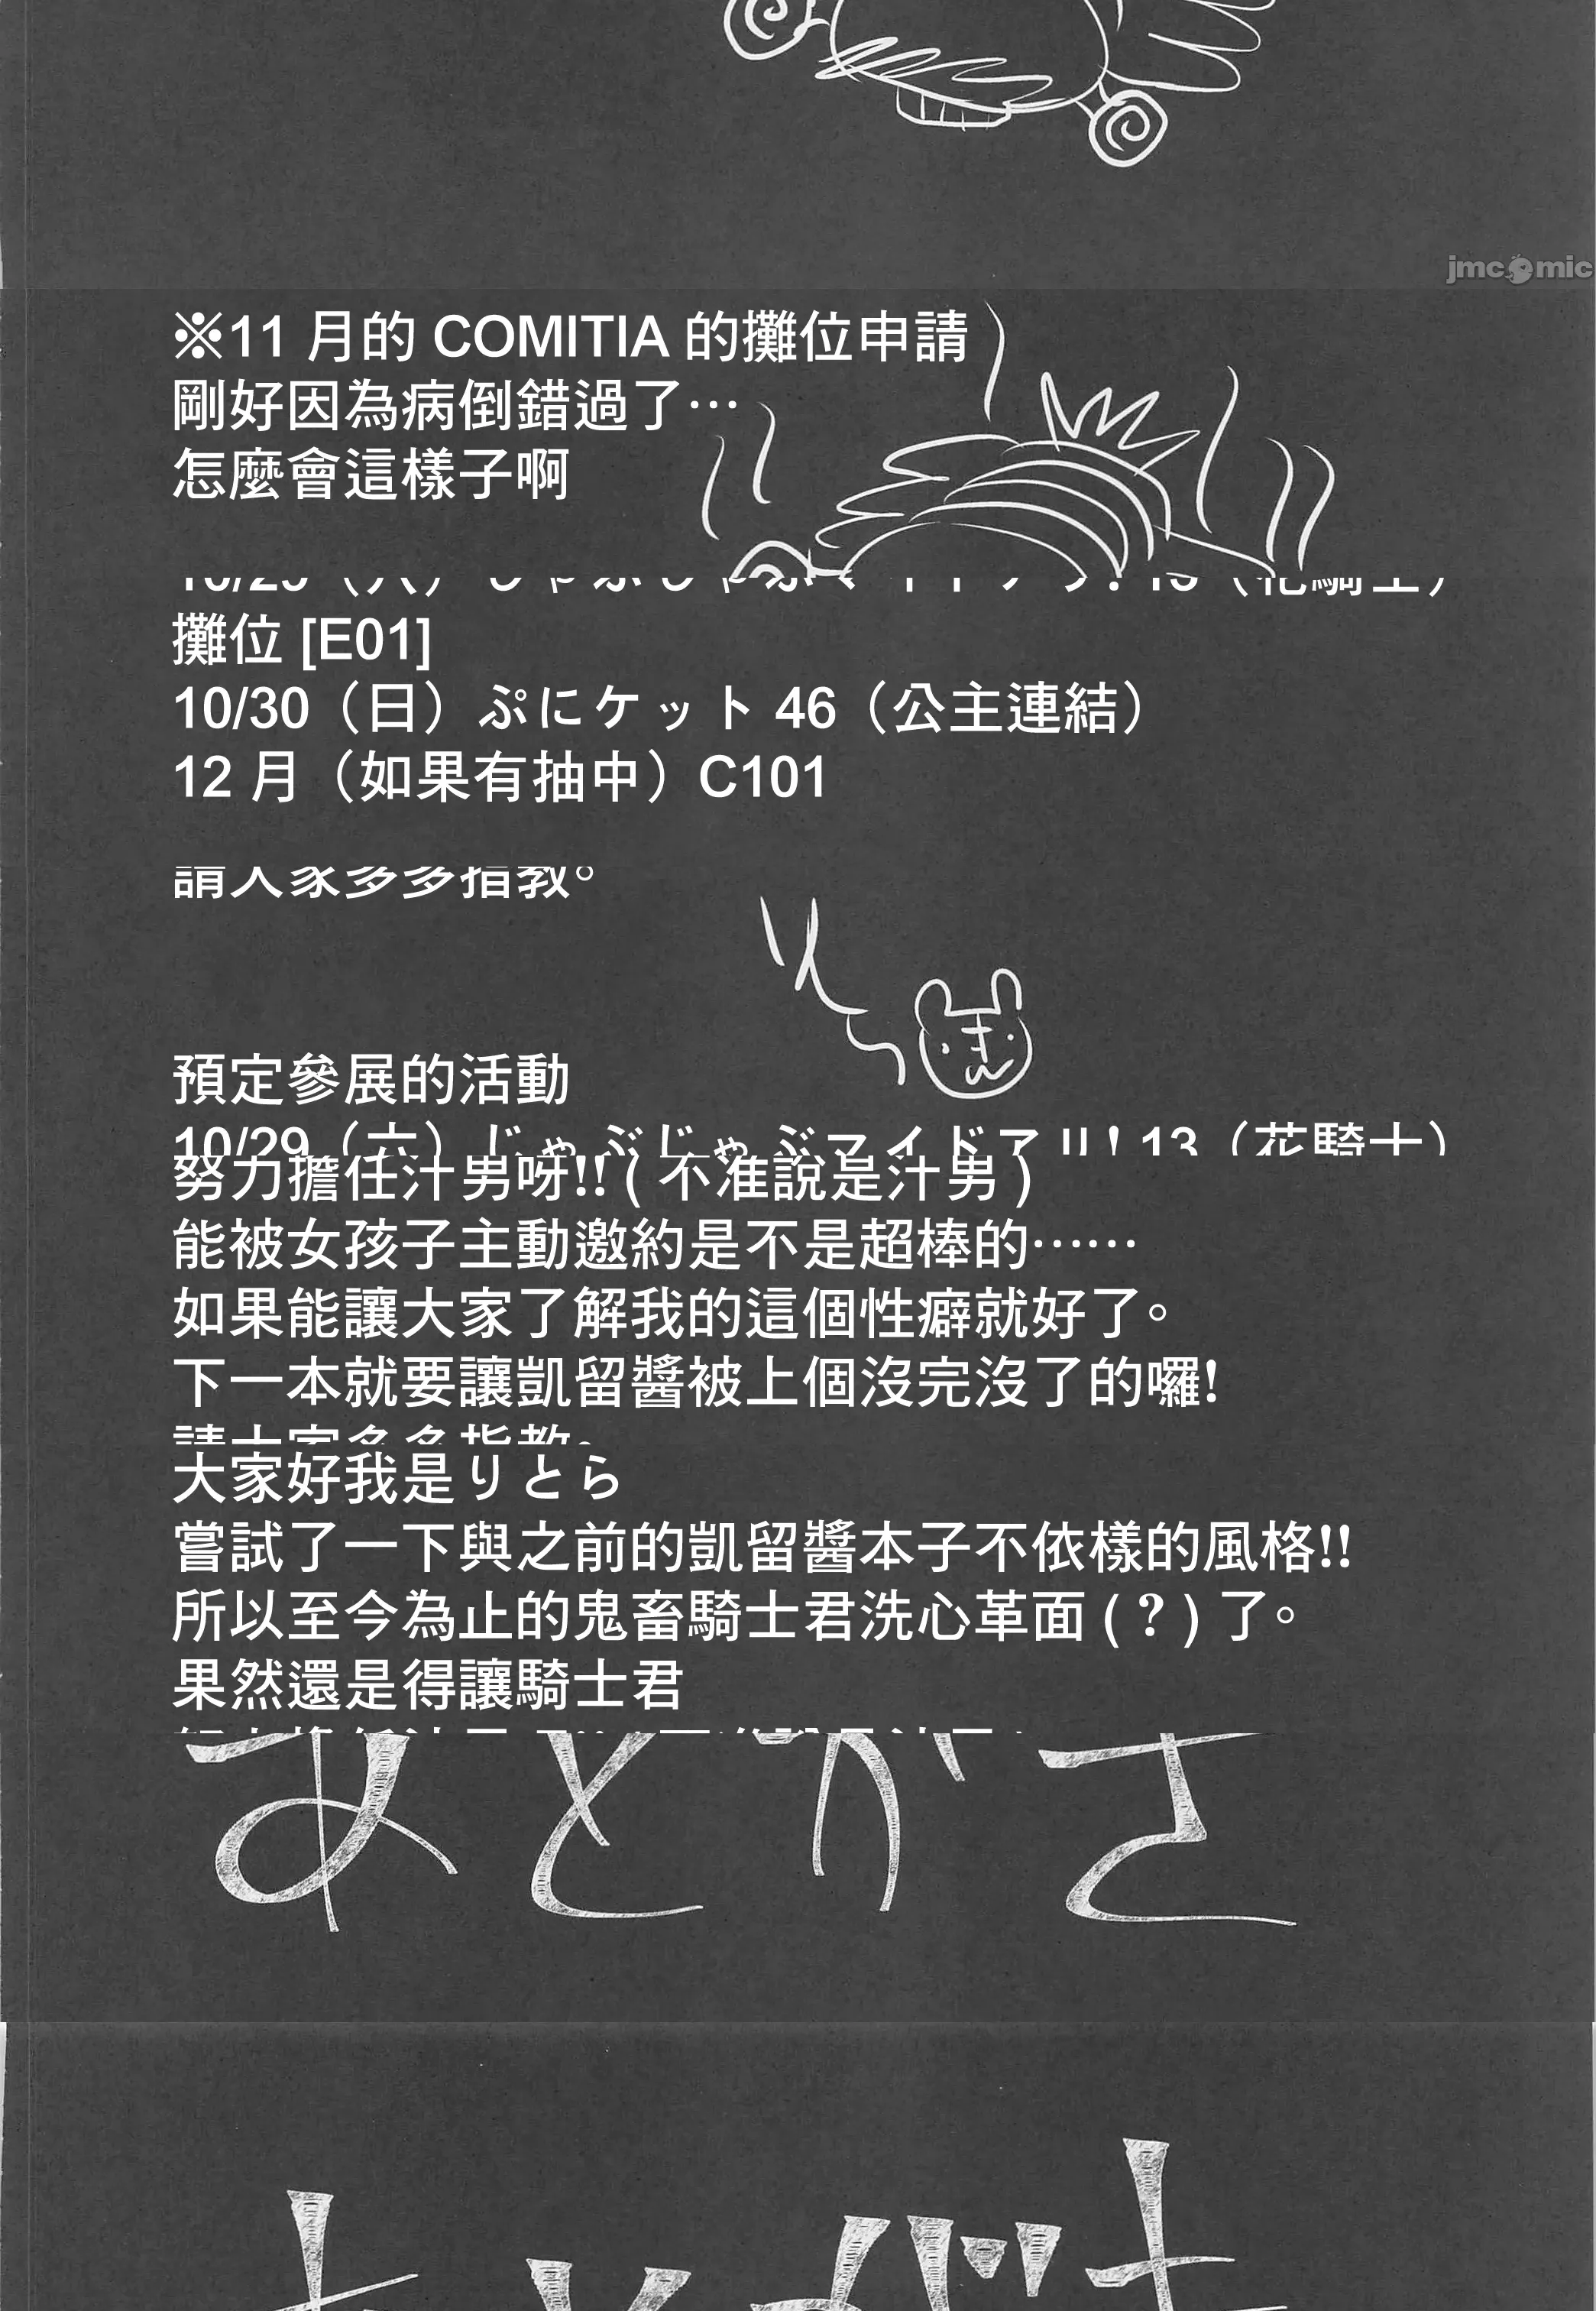 jmcomic
※11 月的 COMITIA 的攤位申請
剛好因為病倒錯過了…
怎麼會這樣子啊
攤位 [E01]
10/30（日）ぷにケット 46（公主連結）
12 月（如果有抽中）C101
請大家多多指教。
預定參展的活動
10/29（六）じゃぶじゃぶマイドアリ! 13（花騎士）
努力擔任汁男呀!! ( 不准說是汁男 )
能被女孩子主動邀約是不是超棒的……
如果能讓大家了解我的這個性癖就好了。
下一本就要讓凱留醬被上個沒完沒了的囉!
請大家多多指教。
大家好我是りとら
嘗試了一下與之前的凱留醬本子不依樣的風格!!
所以至今為止的鬼畜騎士君洗心革面 ( ? ) 了。
果然還是得讓騎士君
あとがき